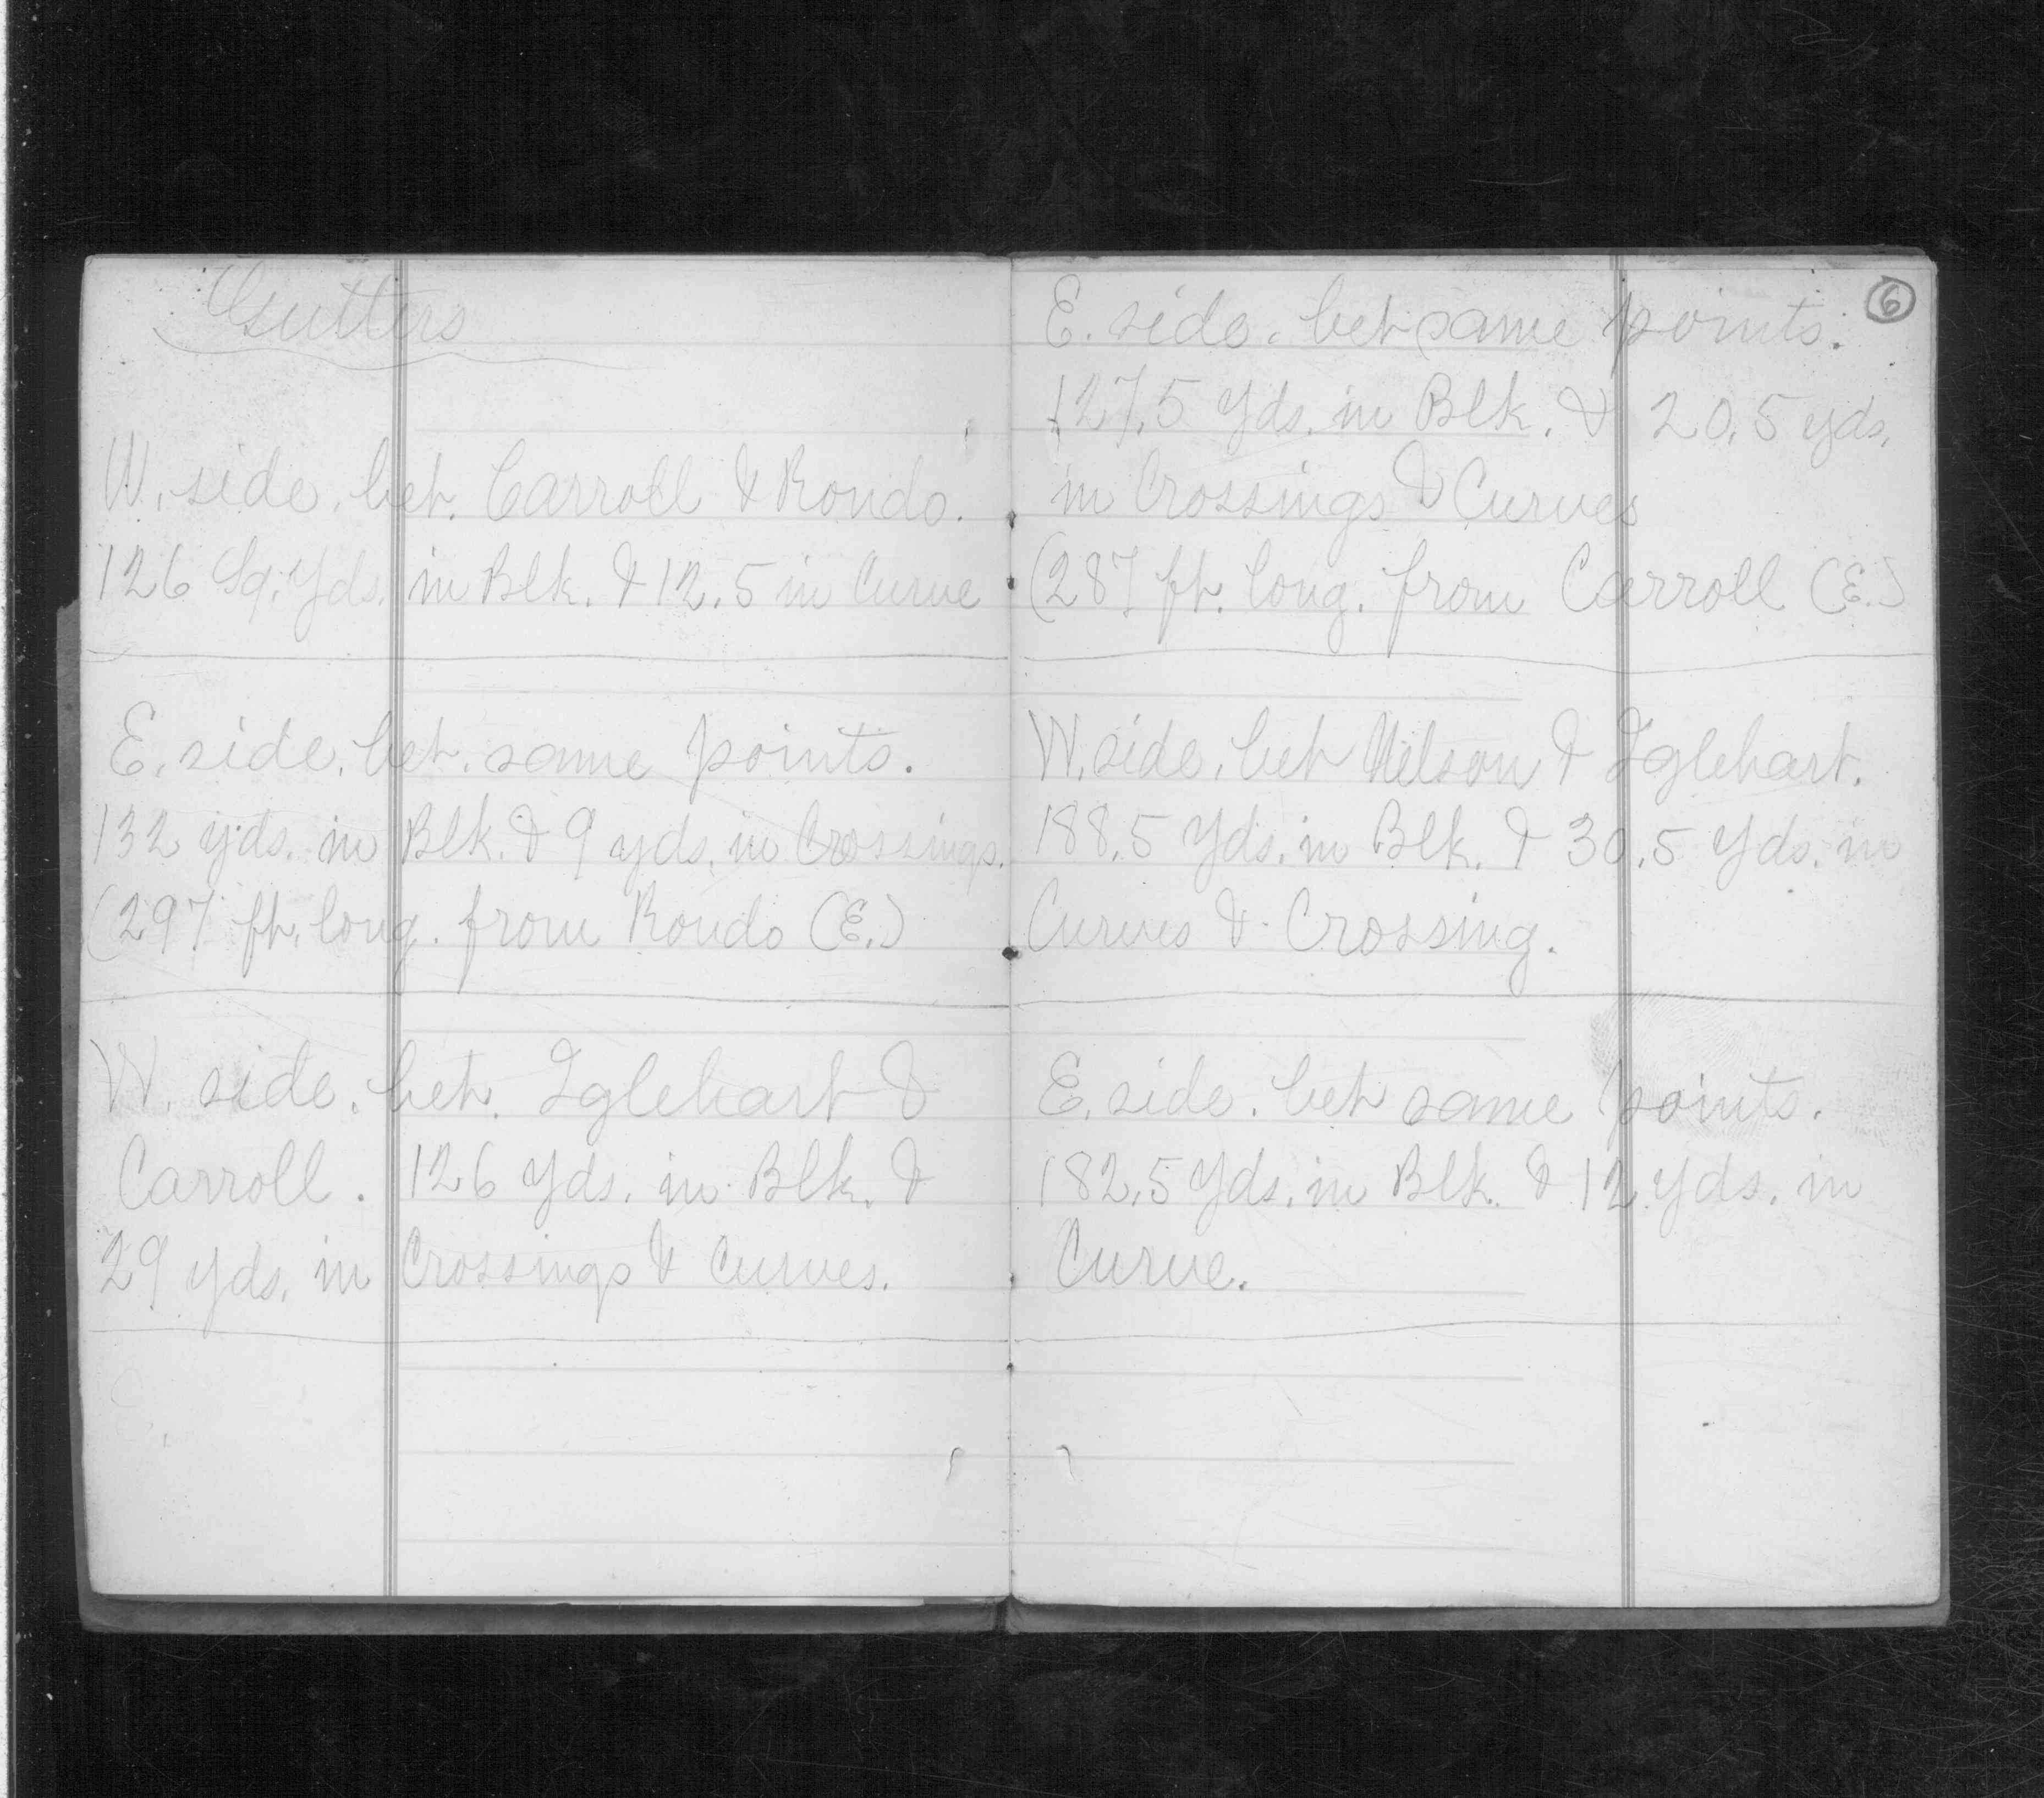 Gutters
W. side. bet. Carroll & Rondo.
126 Sq. Yds. in Blk. & 12.5 in Curve
E. side. bet. same points.
132 yds. in Blk. & 9 yds. in Crossings.
(297 ft. long. from Rondo (E.)
W. side. bet. Iglehart &
Carroll. 126 Yds. in Blk. &
29 yds. in Crossings & Curves.
6
E. side. bet same points.
127.5 Yds. in Blk. & 20.5 yds.
in Crossings & Curves
(287 ft. long. from Carroll (E.)
W. side. bet Nelson & Iglehart.
188.5 Yds. in Blk. & 30.5 Yds. in
Curves & Crossing.
E. side. bet same points.
182.5 Yds. in Blk. & 12 Yds. in
Curve.